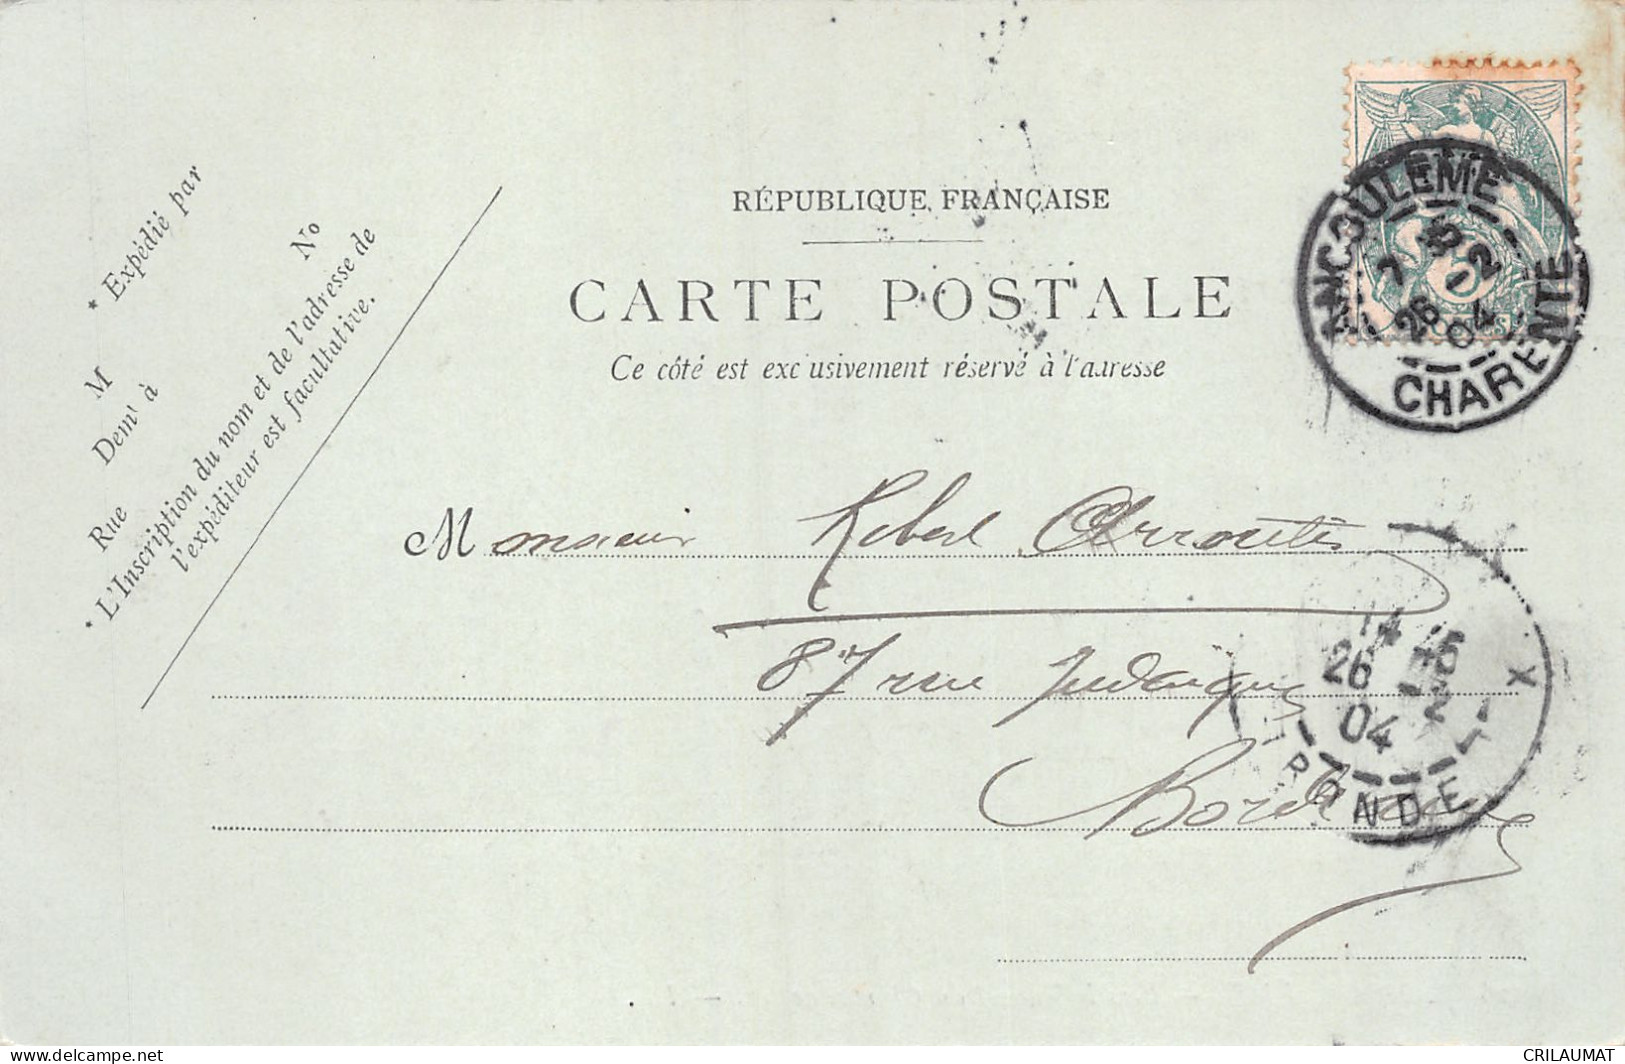 RÉPUBLIQUE FRANÇAISE
CARTE POSTALE
Ce côté est exclusivement réservé à l'adresse
* Expédié par
M
No
Demt à
Rue
* L'Inscription du nom et de l'adresse de
l'expéditeur est facultative.
ANGOULEME
7 26 -2
04
CHARENTE
5
Monsieur Robert
87 rue Judaïque
Bordeaux
14
26 -2
04
GIRONDE
X
CRILAUMAT